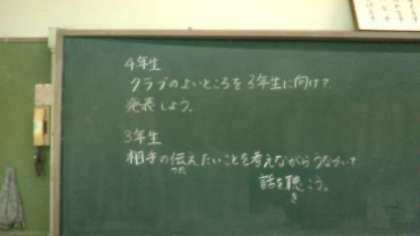 4年生
クラブのよいところを3年生に向けて
発表しよう。
3年生
相手の伝えたいことを考えながらうなづいて
つた
話を聴こう。
き